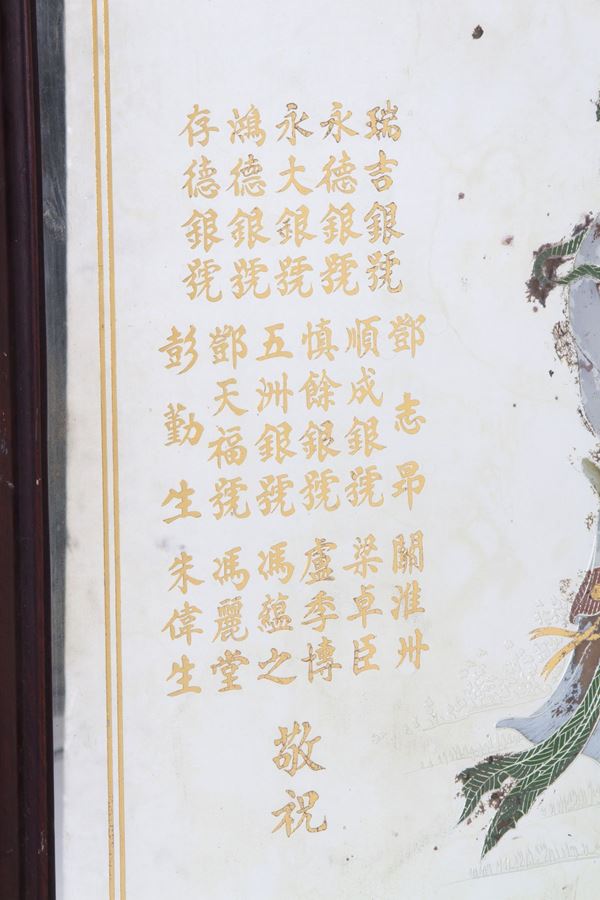 瑞吉銀號
永德銀號
永大銀號
鴻德銀號
存德銀號
鄧志昂
順成銀號
慎餘銀號
五洲銀號
鄧天福號
彭勤生
關淮卅
梁卓臣
盧季博
馮蘊之
馮麗堂
朱偉生
敬祝